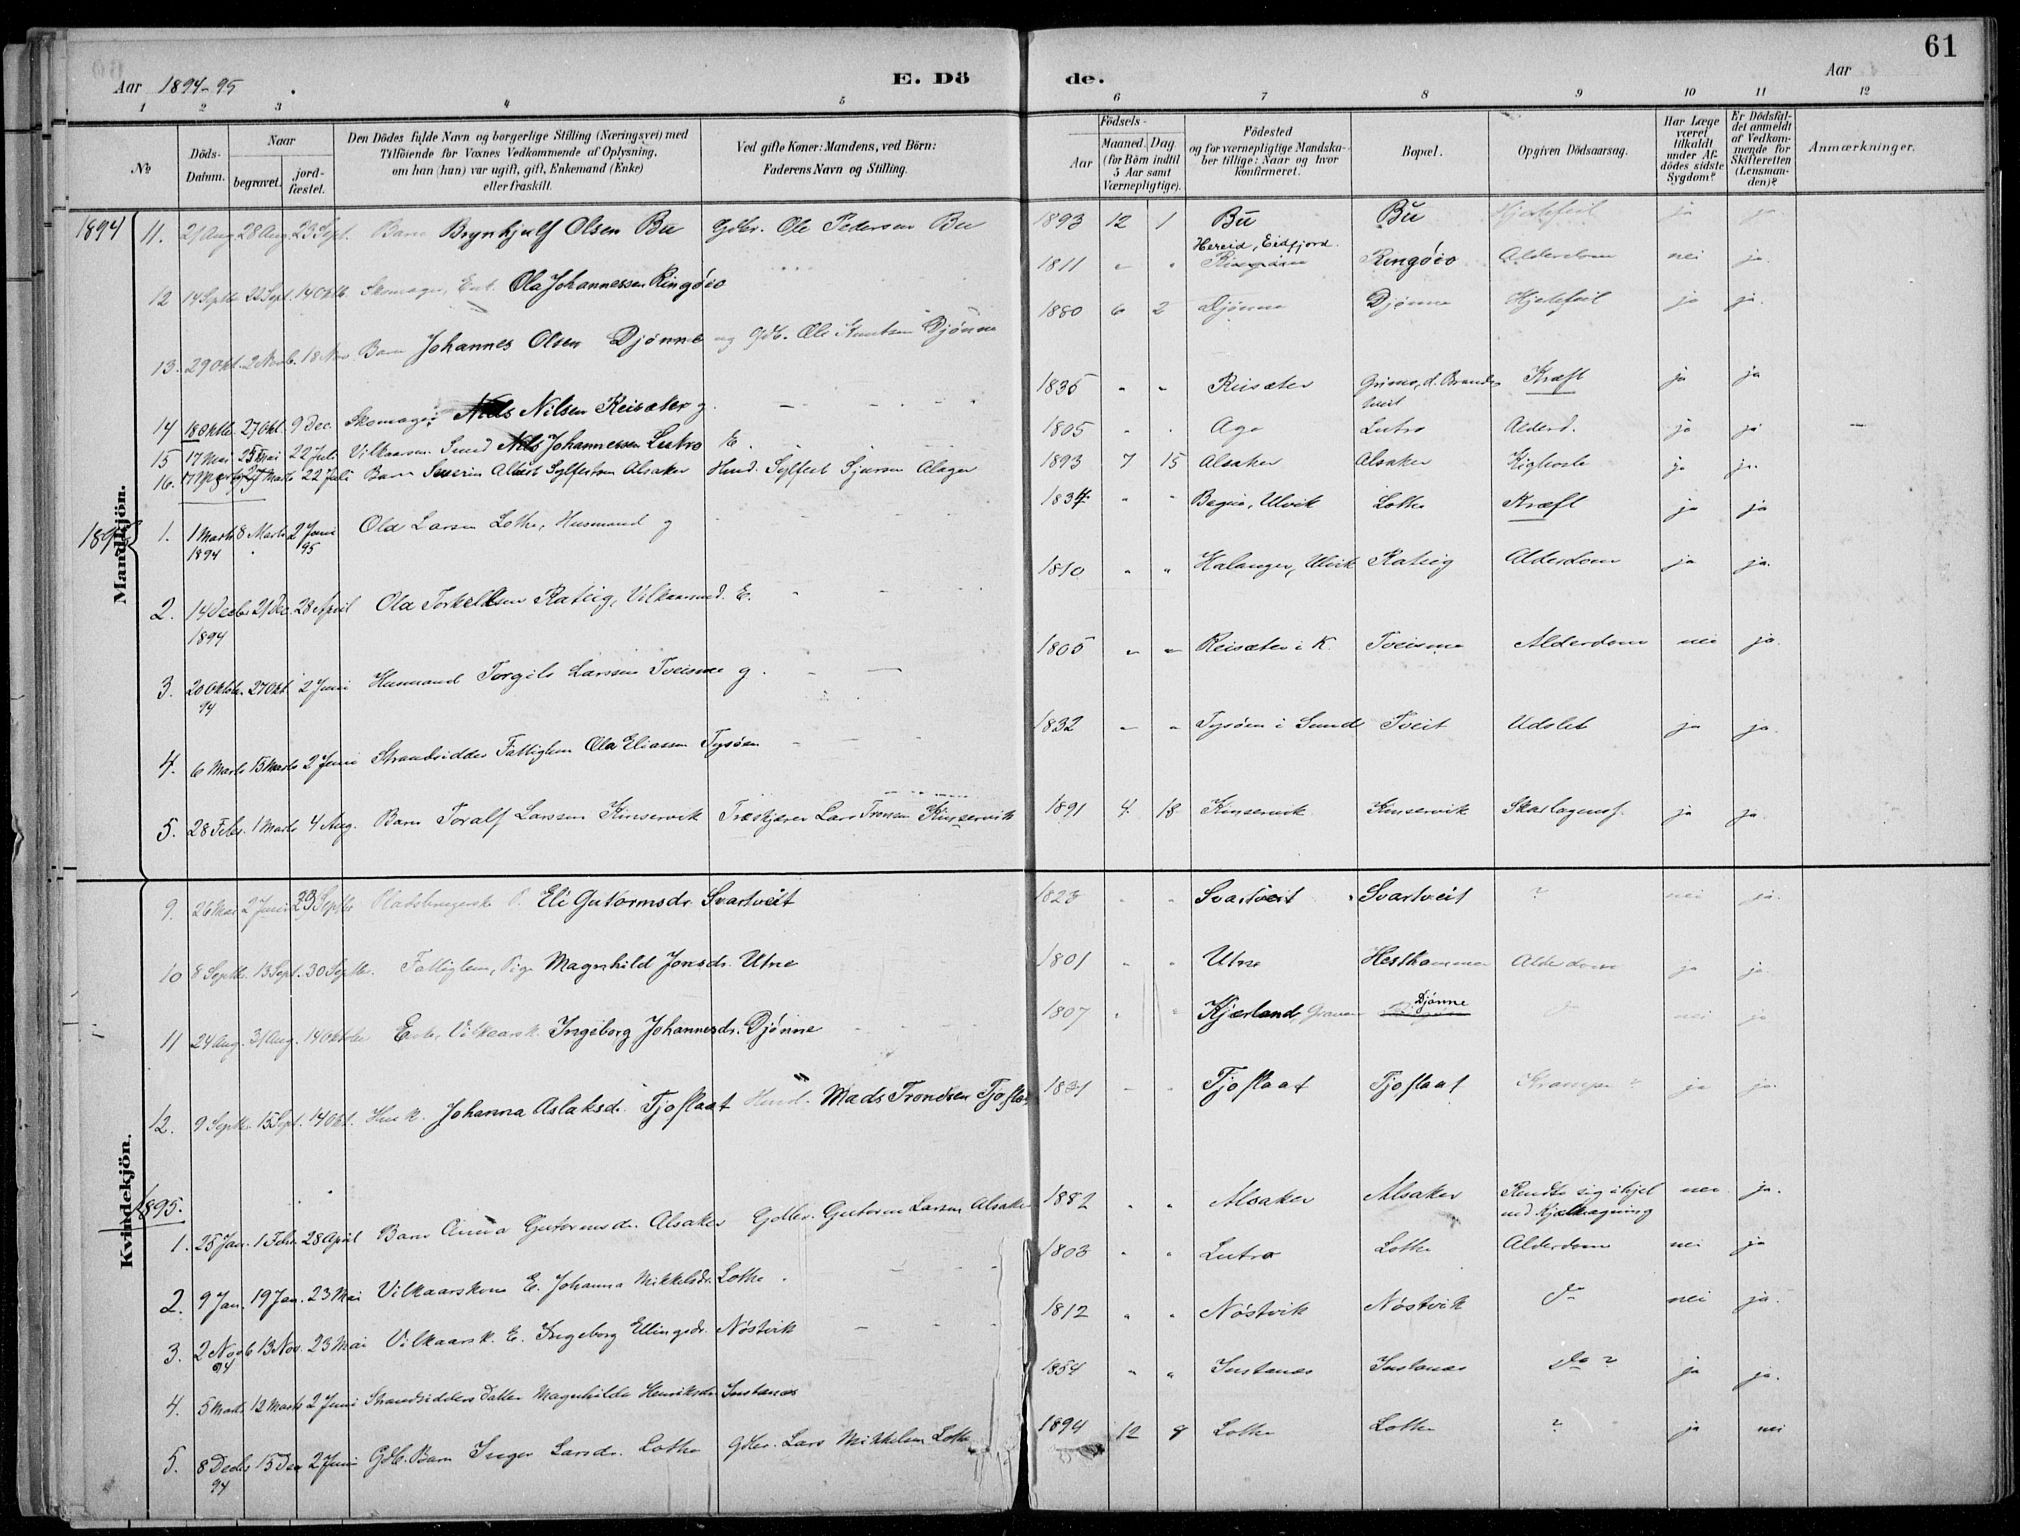 61
Aar 1894-95
E. Dö
de.
Aar
1 2 3 4 5 6 7 8 9 10 11 12
No
Döds-Datum.
Naar
begravet.
jord-fæstet.
Den Dödes fulde Navn og borgerlige Stilling (Næringsvei) med
Tilföiende for Voxnes Vedkommende af Oplysning,
om han (hun) var ugift, gift, Enkemand (Enke)
eller fraskilt.
Ved gifte Koner: Mandens, ved Börn:
Faderens Navn og Stilling.
Födsels-
Aar
Maaned. Dag
(for Börn indtil
5 Aar samt
Værnepligtige).
Födested
og for værnepligtige Mandska-
ber tillige: Naar og hvor
konfirmeret.
Bopæl.
Opgiven Dödsaarsag.
Har Læge
været
tilkaldt
under Af-
dödes sidste
Sygdom?
Er Dödsfal-
det anmeldt
af Vedkom-
mende for
Skifteretten
(Lensman-
den)?
Anmærkninger.
Mandkjön.
1894 11. 21 Aug. 28 Aug. 23 Sept. Barn Brynhjulf Olsen Bu Gdbr. Ole Pedersen Bu 1893 12 1 Bu Bu Hjertefeil ja ja
12 14 Septb. 22 Sept. 14 Oktb. Skomager, Enk. Ola Johannessen Ringøio 1811 " " Hereid, Eidfjord. Ringøio Alderdom nei ja.
13. 29 Okt. 2 Novb. 18 Nov Barn Johannes Olsen Djønne ug Gdb. Ole Knutsen Djønne 1880 6 2 Djønne Djønne Hjertefeil ja ja.
14 18 Oktb. 27 Okt. 9 Dec. Skomager Nils Nilsen Reisæter g. 1835 " " Reisæter Kræft ja ja
15 17 Mai 25 Mai 22 Juli Vilkaarsm. Nils Johannessen Lutro E. 1805 " " Aga Lutro Alderd. ja ja
16. 27 Marts 22 Juli Barn Severin Albert Sylfestsen Alsaker Husd. Sylfest Sjursen Alsager 1893 7 15 Alsaker Alsaker Kighoste ja ja.
1895 1. 1 Marts 1894 8 Marts 2 Juni 95 Ola Larsen Lothe, Husmand g 1834 " " Ulvik Lothe Kræft ja ja
2. 14 Decb. 1894 21 Dec. 28 April Ola Torkellsen Rateig, Vilkaarsmd. E. 1810 " " Halanger, Ulvik Rateig Alderdom ja ja.
3. 20 Oktbr. 94 27 Okt. 2 Juni Husmand Torgils Larssen Tveisme g. 1805 " " Reisæter i K. Tveisme Alderdom nei ja.
4. 6 Marts 15 Marts 2 Juni Strandsidder Fattiglem Ola Eliassen Tysøen 1832 " " Tysøen i Sund Tveit Udslet ja ja.
5. 28 Febr. 1 Marts 4 Aug. Barn Toralf Larssen Kinservik Træskjærer Lars Tronsen Kinservik 1891 4. 18 Kinservik Kinservik Skarlagensf. ja ja.
Kvindekjön.
9. 26 Mai 2 Juni 23 Septbr. Eli Gutormsdr. Svartveit 1823 " " Svartveit Svartveit ? nei ja.
10 8 Septb. 13 Sept. 30 Septbr. Fattiglem, Pige Magnhild Jonsdr. Utne 1801 " " Utne Hesthammer Alderdom ja ja
11 24 Aug. 31 Aug. 14 Oktober Enke, Vilkaarsk. Ingeborg Johannesdr. Djønne 1807 " " Kjærland, Graven Djønne do nei ja
12. 9 Septb. 15 Sept. 14 Okt. Husk. Johanna Aslaksdr. Tjoflaat Husd. Mads Trondsen Tjofla 1831 " " Tjoflaat Tjoflaat Krampe ? ja ja.
1895.
1. 25 Jan. 1 Febr. 28 April Barn Anna Gutormsdr. Alsaker Gdbr. Gutorm Larsen Alsaker 1882 " " Alsaker Alsaker Rendte sig ihjel ved Kjælkeagning nei ja.
2. 9 Jan. 19 Jan. 23 Mai Vilkaarskone E. Johanna Mikkelsdr. Lothe. 1803 " " Lutro Lothe Alderdom nei ja
3. 2 Novb 94 13 Nov. 23 Mai Vilkaarsk. E. Ingeborg Ellingsdr. Nóstvik 1812 " " Nóstvik Nóstvik do nei ja.
4. 5 Marts 12 Marts 2 Juni Strandsidders Datter Magnhilde Henriksdr. Instanes 1854 " " Instanes Instanes do ? ja ja.
5. 8 Decbr 94 15 Dec 2 Juni Gdb. Barn Inger Larsdr. Lothe Gdbr. Lars Mikkelsen Lothe 1894 12 8 Lothe Lothe ? ja nei